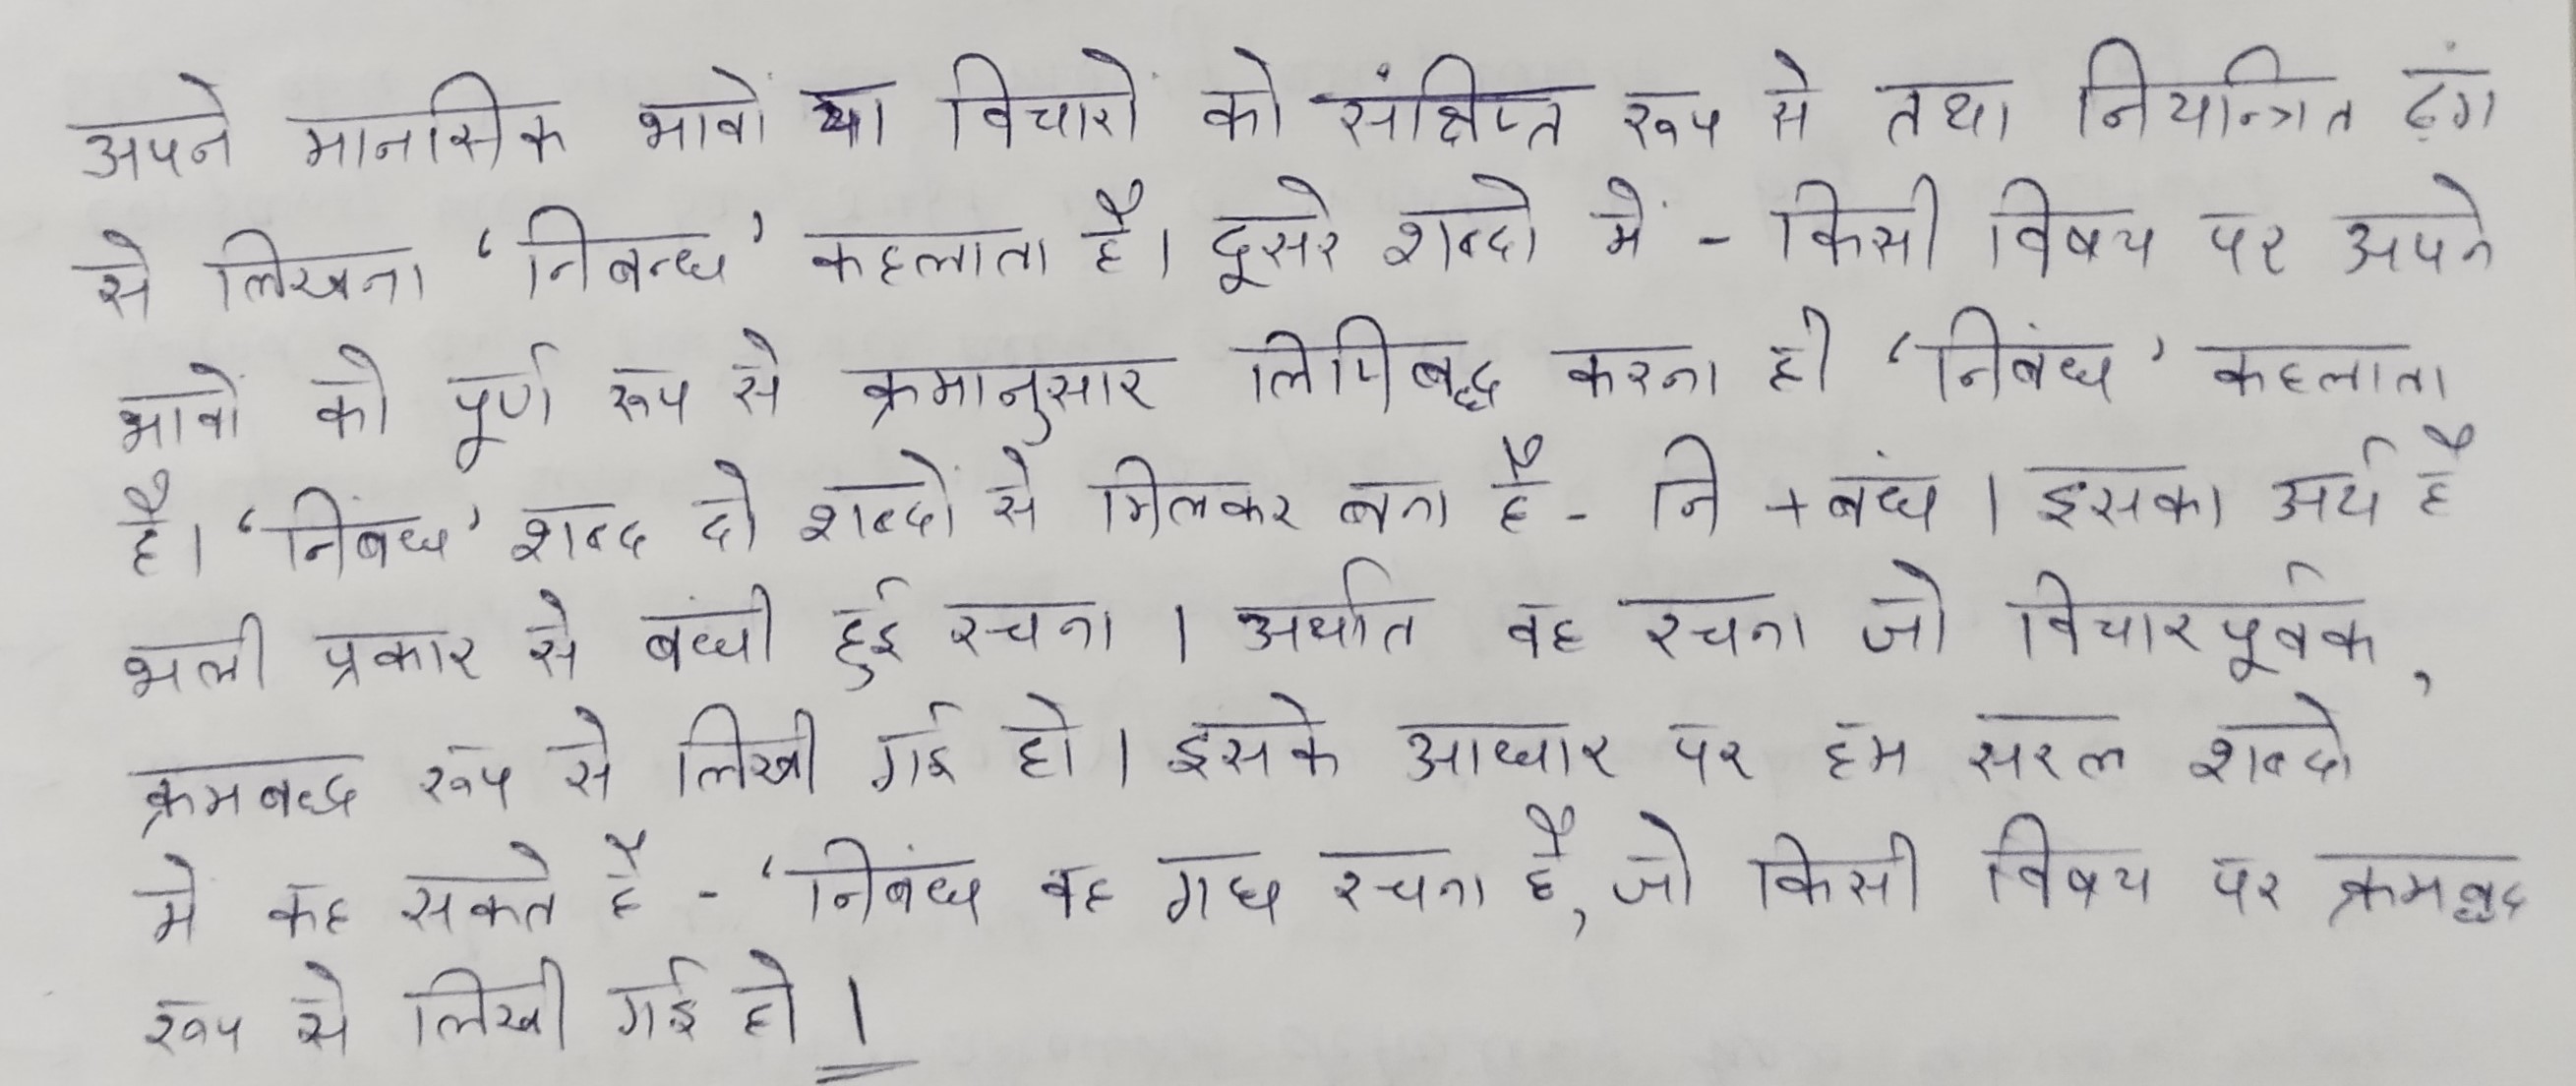 अपने मानसिक भावों या विचारों को संक्षिप्त रूप से तथा नियन्त्रित ढंग
से लिखना ‘निबन्ध’ कहलाता है। दूसरे शब्दो में - किसी विषय पर अपने
भावों को पूर्ण रूप से क्रमानुसार लिपिबद्ध करना ही ‘निबंध’ कहलाता
है। ‘निबंध’ शब्द दो शब्दों से मिलकर बना है - नि + बंध । इसका अर्थ है
भली प्रकार से बंधी हुई रचना । अर्थात वह रचना जो विचारपूर्वक,
क्रमबद्ध रूप से लिखी गई हो । इसके आधार पर हम सरल शब्दो
में कह सकते है - ‘निबंध वह गद्य रचना है, जो किसी विषय पर क्रमबद्ध
रूप से लिखी गई हो ।